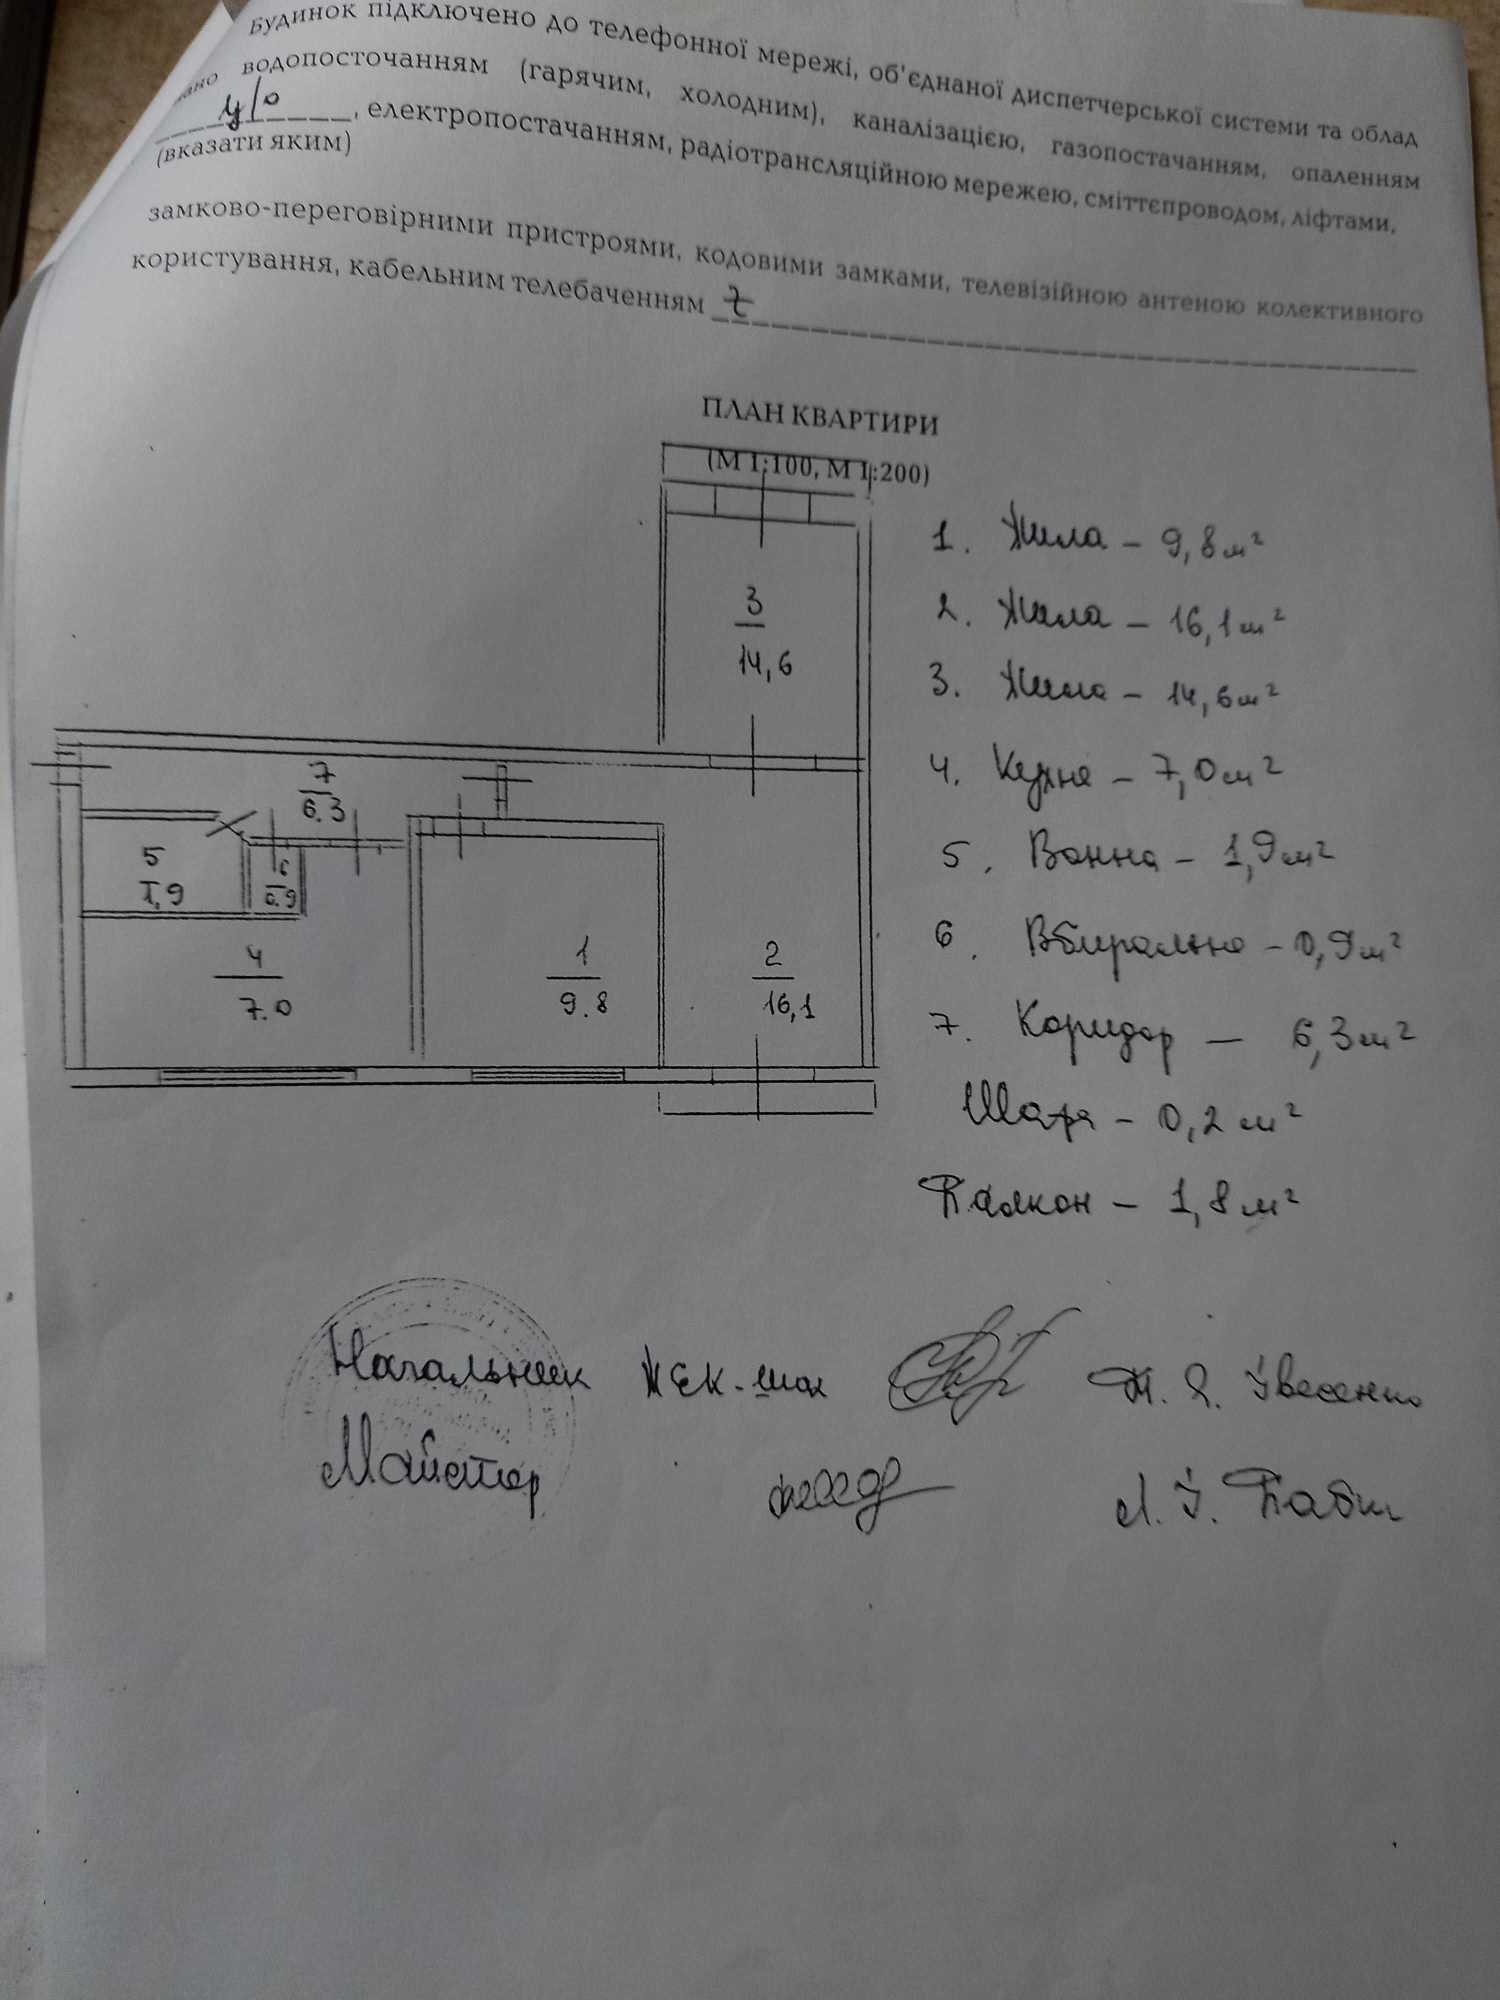 Будинок підключено до телефонної мережі, об'єднаної диспетчерської системи та облад
нано водопосточанням (гарячим, холодним), каналізацією, газопостачанням, опаленням
ц/о, електропостачанням, радіотрансляційною мережею, сміттєпроводом, ліфтами,
(вказати яким)
замково-переговірними пристроями, кодовими замками, телевізійною антеною колективного
користування, кабельним телебаченням
ПЛАН КВАРТИРИ
(М 1:100, М 1:200)
3
14,6
7
6.3
5
1,9
6
0.9
4
7.0
1
9.8
2
16,1
1. Жила – 9,8 м²
2. Жила – 16,1 м²
3. Жила – 14,6 м²
4. Кухня – 7,0 м²
5. Ванна – 1,9 м²
6. Вбиральня – 0,9 м²
7. Коридор – 6,3 м²
Шафа – 0,2 м²
Балкон – 1,8 м²
Начальник ЖЕК
Майстер Л. І.